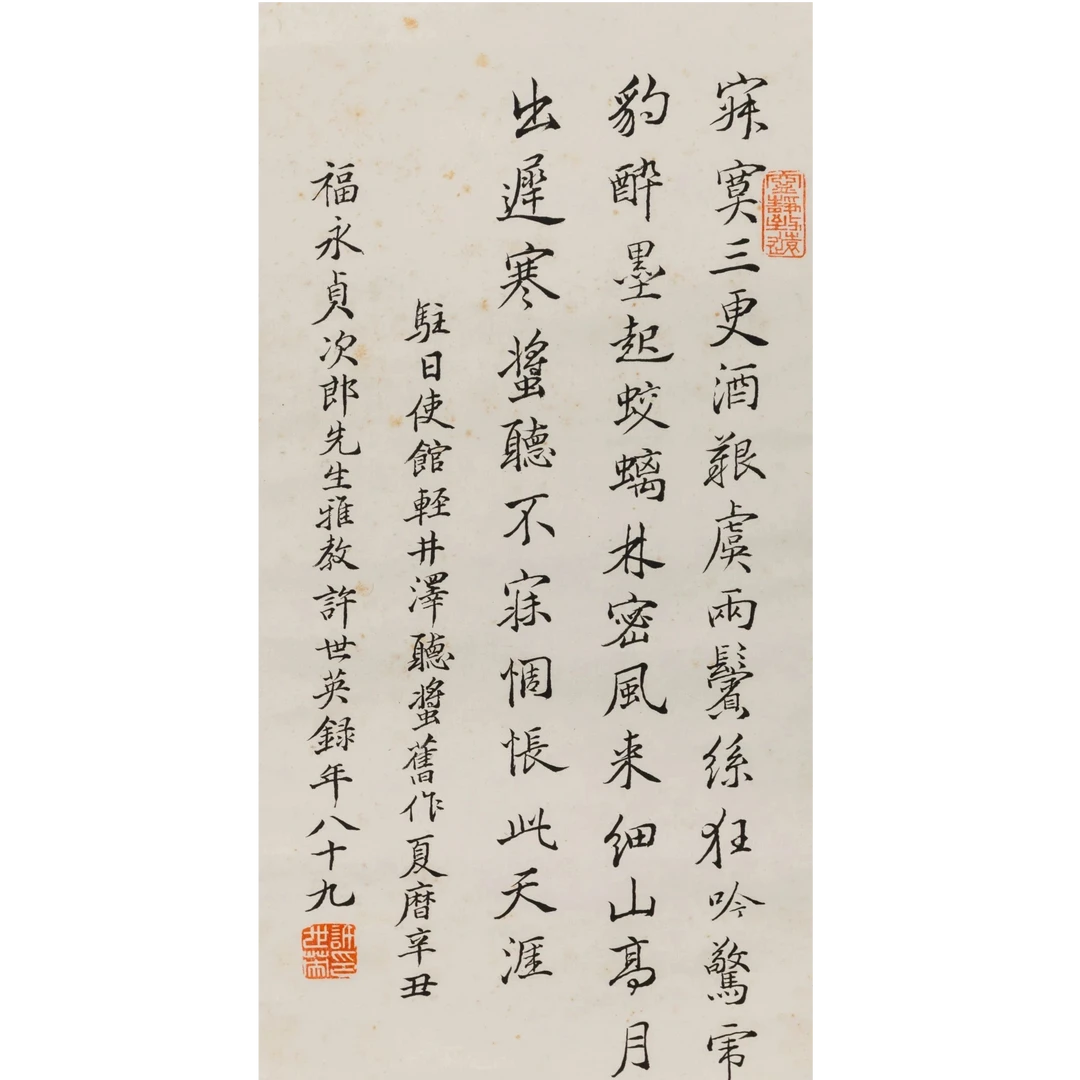 寂寞三更酒艱虞兩鬢絲狂吟驚虎
豹醉墨起蛟螭林密風來細山高月
出遲寒螿聽不寐惆悵此天涯
駐日使館輕井澤聽螿舊作夏曆辛丑
福永貞次郎先生雅教許世英錄年八十九
寧靜致遠
許世英印